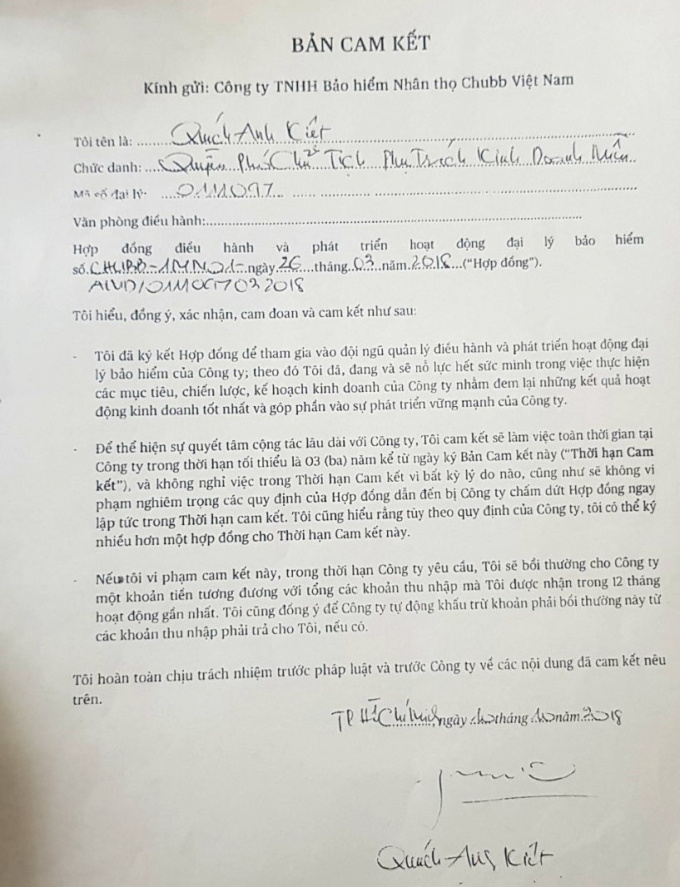 BẢN CAM KẾT
Kính gửi: Công ty TNHH Bảo hiểm Nhân thọ Chubb Việt Nam
Tôi tên là: Quách Anh Kiệt
Chức danh: Quyền Phó Chủ Tịch Phụ Trách Kinh Doanh Miền
Mã số đại lý: 011097
Văn phòng điều hành:
Hợp đồng điều hành và phát triển hoạt động đại lý bảo hiểm
số ngày 26 tháng 03 năm 2018 ("Hợp đồng").
Tôi hiểu, đồng ý, xác nhận, cam đoan và cam kết như sau:
- Tôi đã ký kết Hợp đồng để tham gia vào đội ngũ quản lý điều hành và phát triển hoạt động đại
lý bảo hiểm của Công ty; theo đó Tôi đã, đang và sẽ nỗ lực hết sức mình trong việc thực hiện
các mục tiêu, chiến lược, kế hoạch kinh doanh của Công ty nhằm đem lại những kết quả hoạt
động kinh doanh tốt nhất và góp phần vào sự phát triển vững mạnh của Công ty.
- Để thể hiện sự quyết tâm cộng tác lâu dài với Công ty, Tôi cam kết sẽ làm việc toàn thời gian tại
Công ty trong thời hạn tối thiểu là 03 (ba) năm kể từ ngày ký Bản Cam kết này ("Thời hạn Cam
kết"), và không nghỉ việc trong Thời hạn Cam kết vì bất kỳ lý do nào, cũng như sẽ không vi
phạm nghiêm trọng các quy định của Hợp đồng dẫn đến bị Công ty chấm dứt Hợp đồng ngay
lập tức trong Thời hạn cam kết. Tôi cũng hiểu rằng tùy theo quy định của Công ty, tôi có thể ký
nhiều hơn một hợp đồng cho Thời hạn Cam kết này.
- Nếu tôi vi phạm cam kết này, trong thời hạn Công ty yêu cầu, Tôi sẽ bồi thường cho Công ty
một khoản tiền tương đương với tổng các khoản thu nhập mà Tôi được nhận trong 12 tháng
hoạt động gần nhất. Tôi cũng đồng ý để Công ty tự động khấu trừ khoản phải bồi thường này từ
các khoản thu nhập phải trả cho Tôi, nếu có.
Tôi hoàn toàn chịu trách nhiệm trước pháp luật và trước Công ty về các nội dung đã cam kết nêu
trên.
TP Hồ Chí Minh, ngày tháng năm 2018
Quách Anh Kiệt